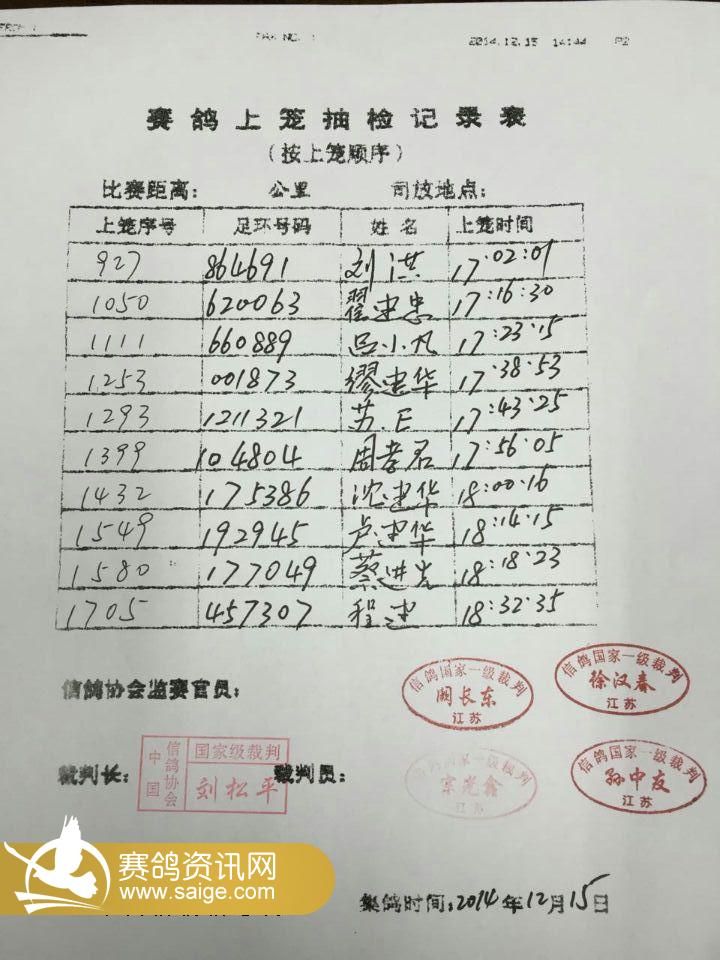 FAX NO. :
2014.12.15 14:44 P2
赛鸽上笼抽检记录表
(按上笼顺序)
比赛距离: 公里 司放地点:
上笼序号 足环号码 姓名 上笼时间
927 864691 刘洪 17:02:01
1050 620063 翟建忠 17:16:30
1111 660889 吕小凡 17:23:15
1253 001873 缪建华 17:38:53
1293 1211321 苏.E 17:43:25
1399 104804 周孝君 17:56:05
1432 175386 沈建华 18:00:16
1549 192945 卢建华 18:14:15
1580 177049 蔡进先 18:18:23
1705 457307 程建 18:32:35
信鸽协会监赛官员:
信鸽国家一级裁判
阚长东
江苏
信鸽国家一级裁判
徐汉春
江苏
裁判长:
中国
信鸽协会
国家级裁判
刘松平
裁判员:
信鸽国家一级裁判
宗光鑫
江苏
信鸽国家一级裁判
孙中友
江苏
赛鸽资讯网
www.saige.com
集鸽时间:2014年12月15日